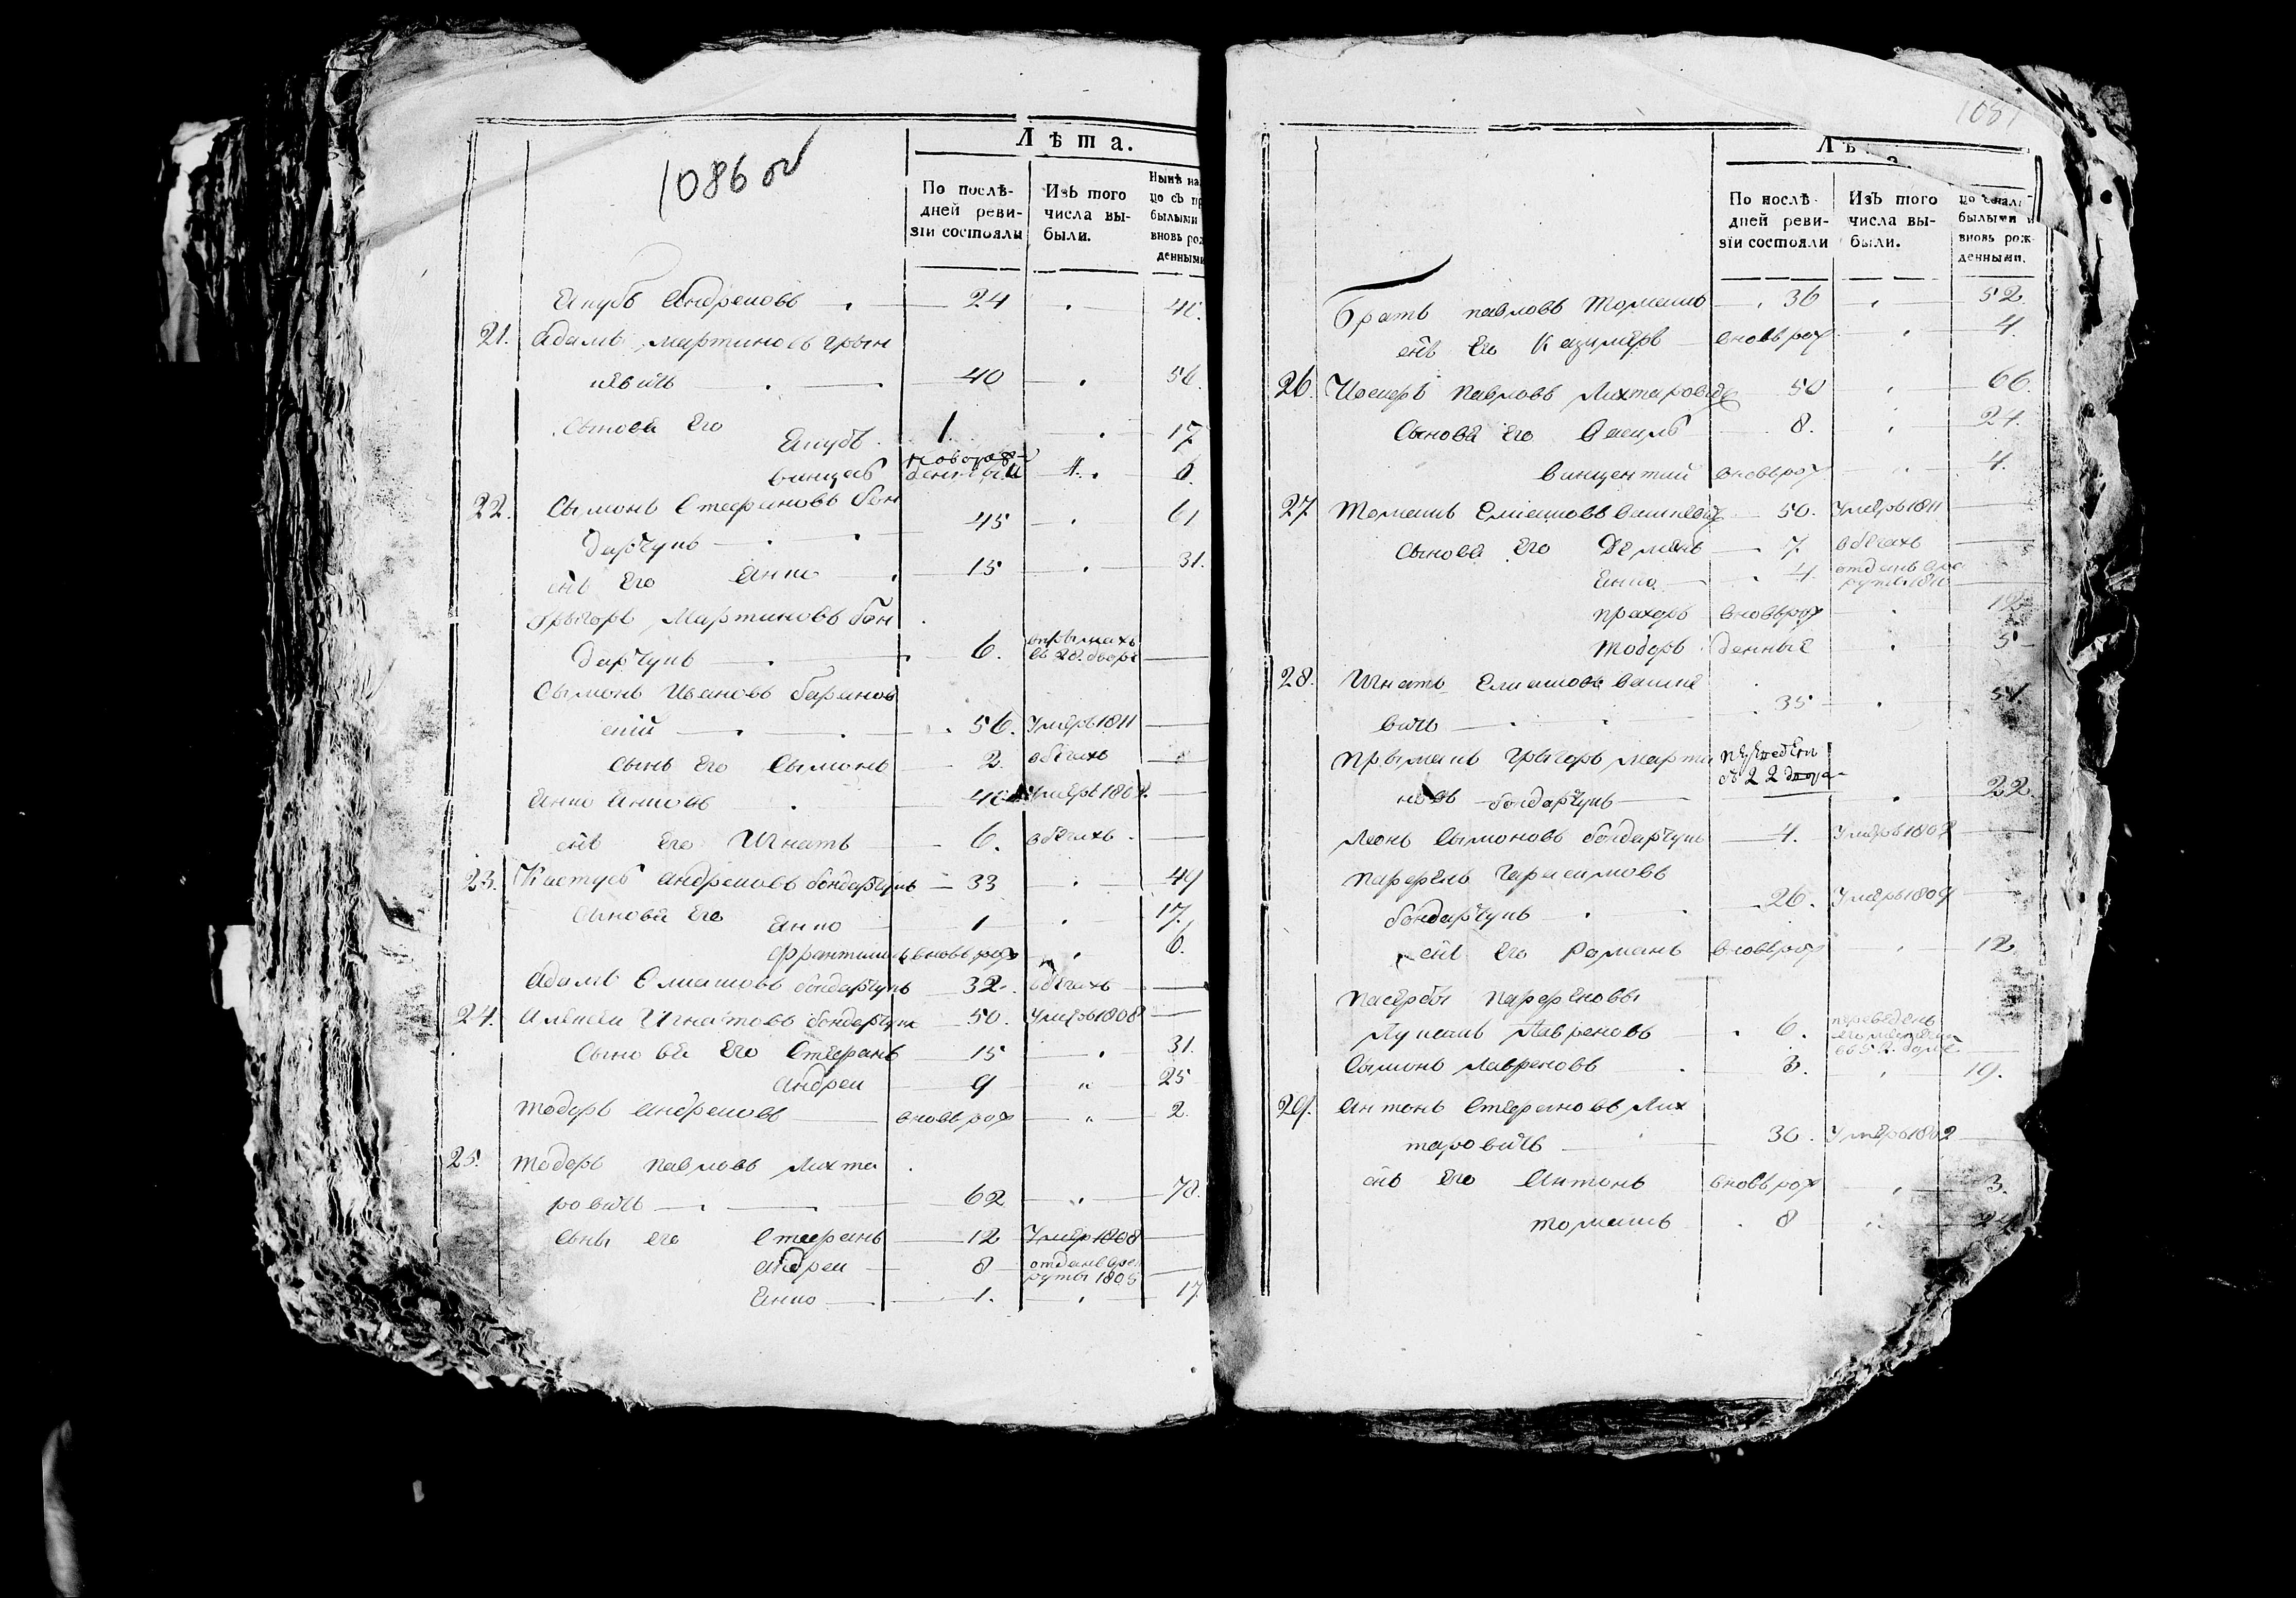 1086 об
Лѣта.
По послѣ-
дней реви-
зіи состояли
Изъ того
числа вы-
были.
Нынѣ на
цо съ пр
былыми
вновь рож
денными
Якубъ Андреювъ 24
21. Адамъ Мартиновъ Грын
40 56.
Сыновя Его Якубъ 1. 17
Винцесь новорож-
денный 6.
22. Сымонъ Стефановъ бон
дарчукъ 45 61
снъ Его Янко 15 31.
Грыгоръ Мартиновъ бон
дарчукъ 6. въ 28. дворѣ
Сымонъ Ивановъ Баранов
скій 56. Умеръ 1811
Сынъ Его Сымонъ 2. в бегахъ
Янко Янковъ Умеръ
снъ Его Игнатъ 6. в бегахъ
23. Кастусь Андреювъ бондарчукъ 33 49
Сыновя Его Янко 1 17.
Франтишекъ вновь рож 6.
Адамъ Елиашовъ бондарчукъ 32. в бегахъ
24. Алексей Игнатовъ бондарчукъ 50. Умеръ 1808
Сыновя Его Стефанъ 15 31.
Андрей 9 25
Тодоръ Андреювъ вновь рож 2.
25. Тодоръ Павловъ Лихта
ровичъ 62 78.
Сыны его Стефанъ 12 Умеръ 1808
Андрей 8 отданъ в рек
руты 1805
Янко 1. 17
1087
Лѣ
По послѣ-
дней реви-
зіи состояли
Изъ того
числа вы-
были.
былыми и
вновь рож-
денными.
Братъ Павловъ Томашъ 36 52
снъ Его Казимеръ вновь рож 4
26. Иосифъ Павловъ Лихтаровичъ 50 66.
Сыновя Его Василь 8. 24.
Винцентий вновь рож 4.
27 Томашъ Елиашовъ Вашкевичъ 50. Умеръ 1811
Сыновя Его Демянъ 7. в бегахъ
Янко 4. отданъ в рек
руты 1811
Прохоръ вновь рож 12
Тодоръ денные 5
28. Игнатъ Елиашовъ Вашке
вичъ 35 51.
Прымакъ Грыгоръ Марти
новъ бондарчукъ переведен
съ 22 двора 22.
Леонъ Сымоновъ бондарчукъ 4. Умеръ 1807
Парфенъ Герасимовъ
бондарчукъ 26. Умеръ 1809
снъ Его Романъ вновь рож 12.
Пасербы Парфеновы
Лукашъ Лавреновъ 6. переведенъ
въ 52. домъ
Сымонъ Лавреновъ 3. 19.
29. Антонъ Стефановъ Лих
таровичъ 30. Умеръ 1802
снъ Его Антонъ вновь рож 3.
Томашъ 8 24